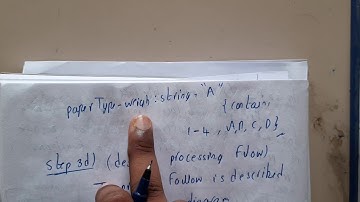 paperType-weigh : string = "A"
{contain,
1-4, A, B, C, D}
Step 3d) (de processing Flow)
Follow is described